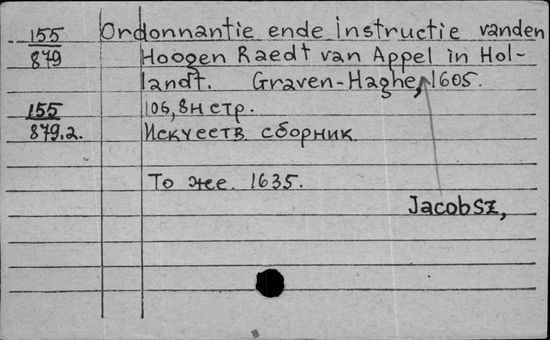 155 Ordonnantie ende instructie vanden
879 Hoogen Raedt van Appel in Hol-
landt. Graven-Haghe, 1605.
155 106, 8н стр.
879.2. Искусств. сборник.
То же. 1635.
Jacobsz,